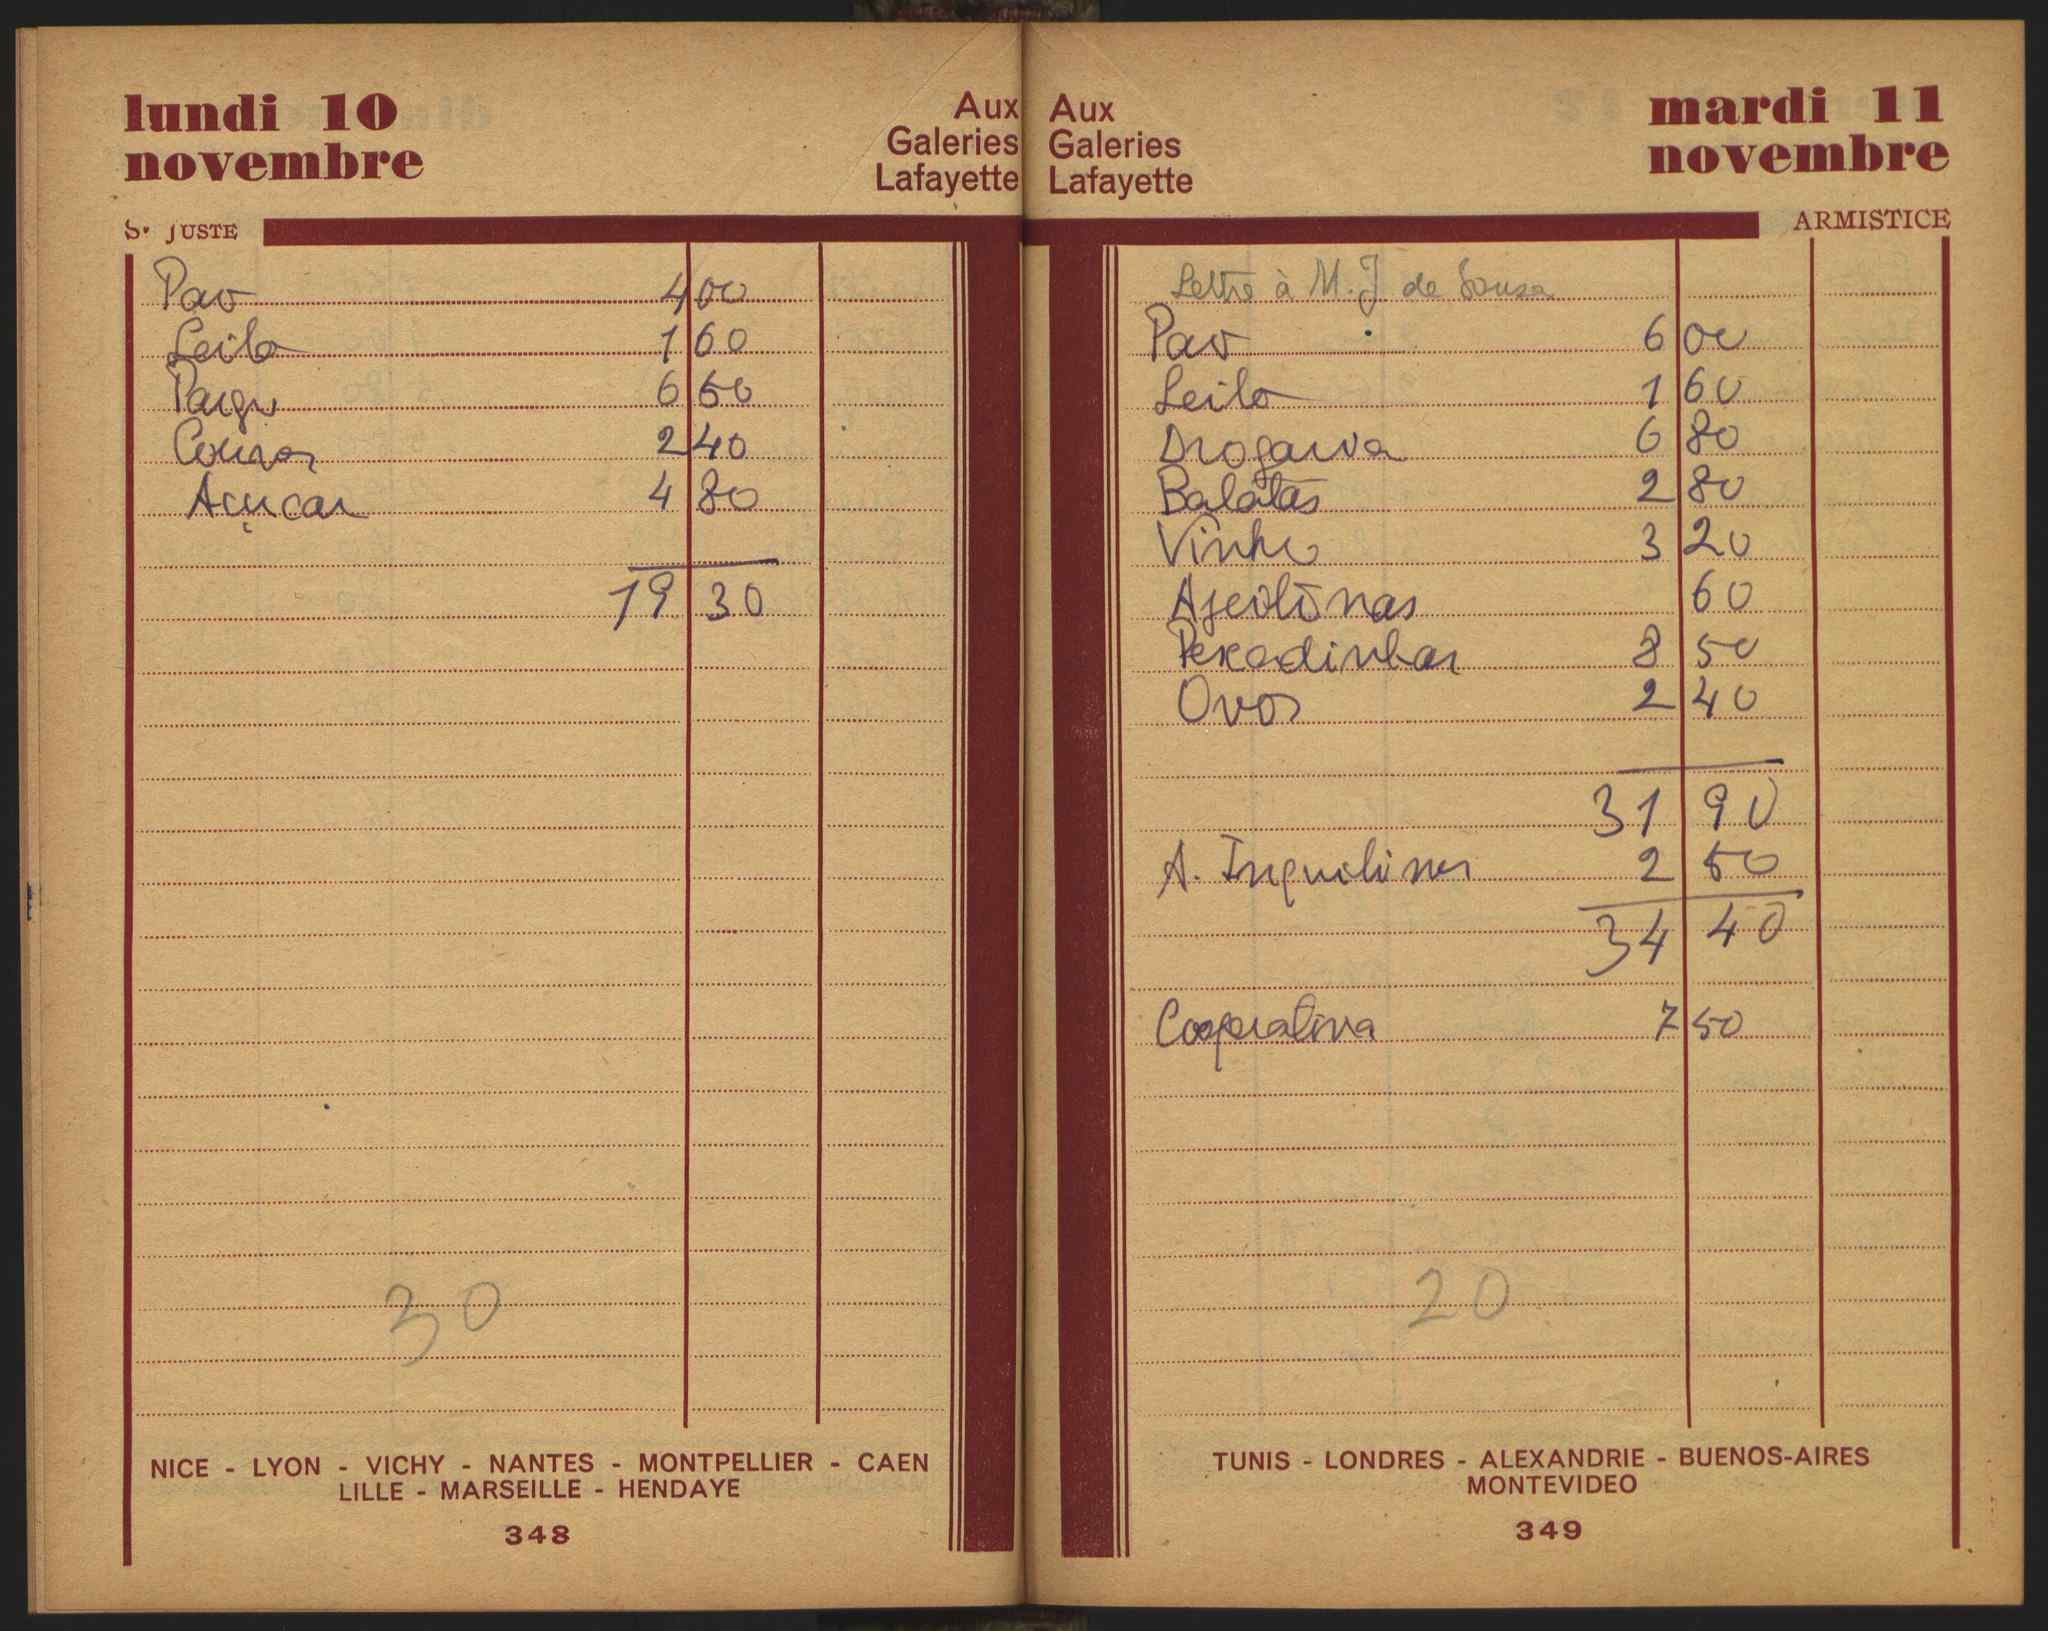 lundi 10
novembre
Aux
Galeries
Lafayette
Se JUSTE
Pao 4 00
Leite 1 60
Paigo 6 50
Couves 2 40
Açucar 4 80
19 30
30
NICE - LYON - VICHY - NANTES - MONTPELLIER - CAEN
LILLE - MARSEILLE - HENDAYE
348
Aux
Galeries
Lafayette
mardi 11
novembre
ARMISTICE
Lettre à M. J de Sousa
Pao 6 00
Leite 1 60
Drogaria 6 80
Batatas 2 80
Vinho 3 20
Azeitonas 60
Pexcadinhas 8 50
Ovos 2 40
31 90
A. Inquilinos 2 50
34 40
Cooperativa 7 50
20
TUNIS - LONDRES - ALEXANDRIE - BUENOS-AIRES
MONTEVIDEO
349